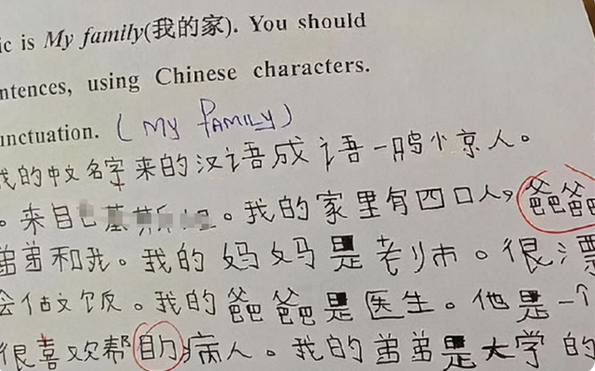 ic is My family(我的家). You should
ntences, using Chinese characters.
unctuation. (MY FAMILY)
我的中文名字来的汉语成语一鸣小京人。
。来自基斯坦。我的家里有四口人,爸爸
弟弟和我。我的妈妈是老师。很漂
会做饭。我的爸爸是医生。他是一个
很喜欢帮助病人。我的弟弟是大学的